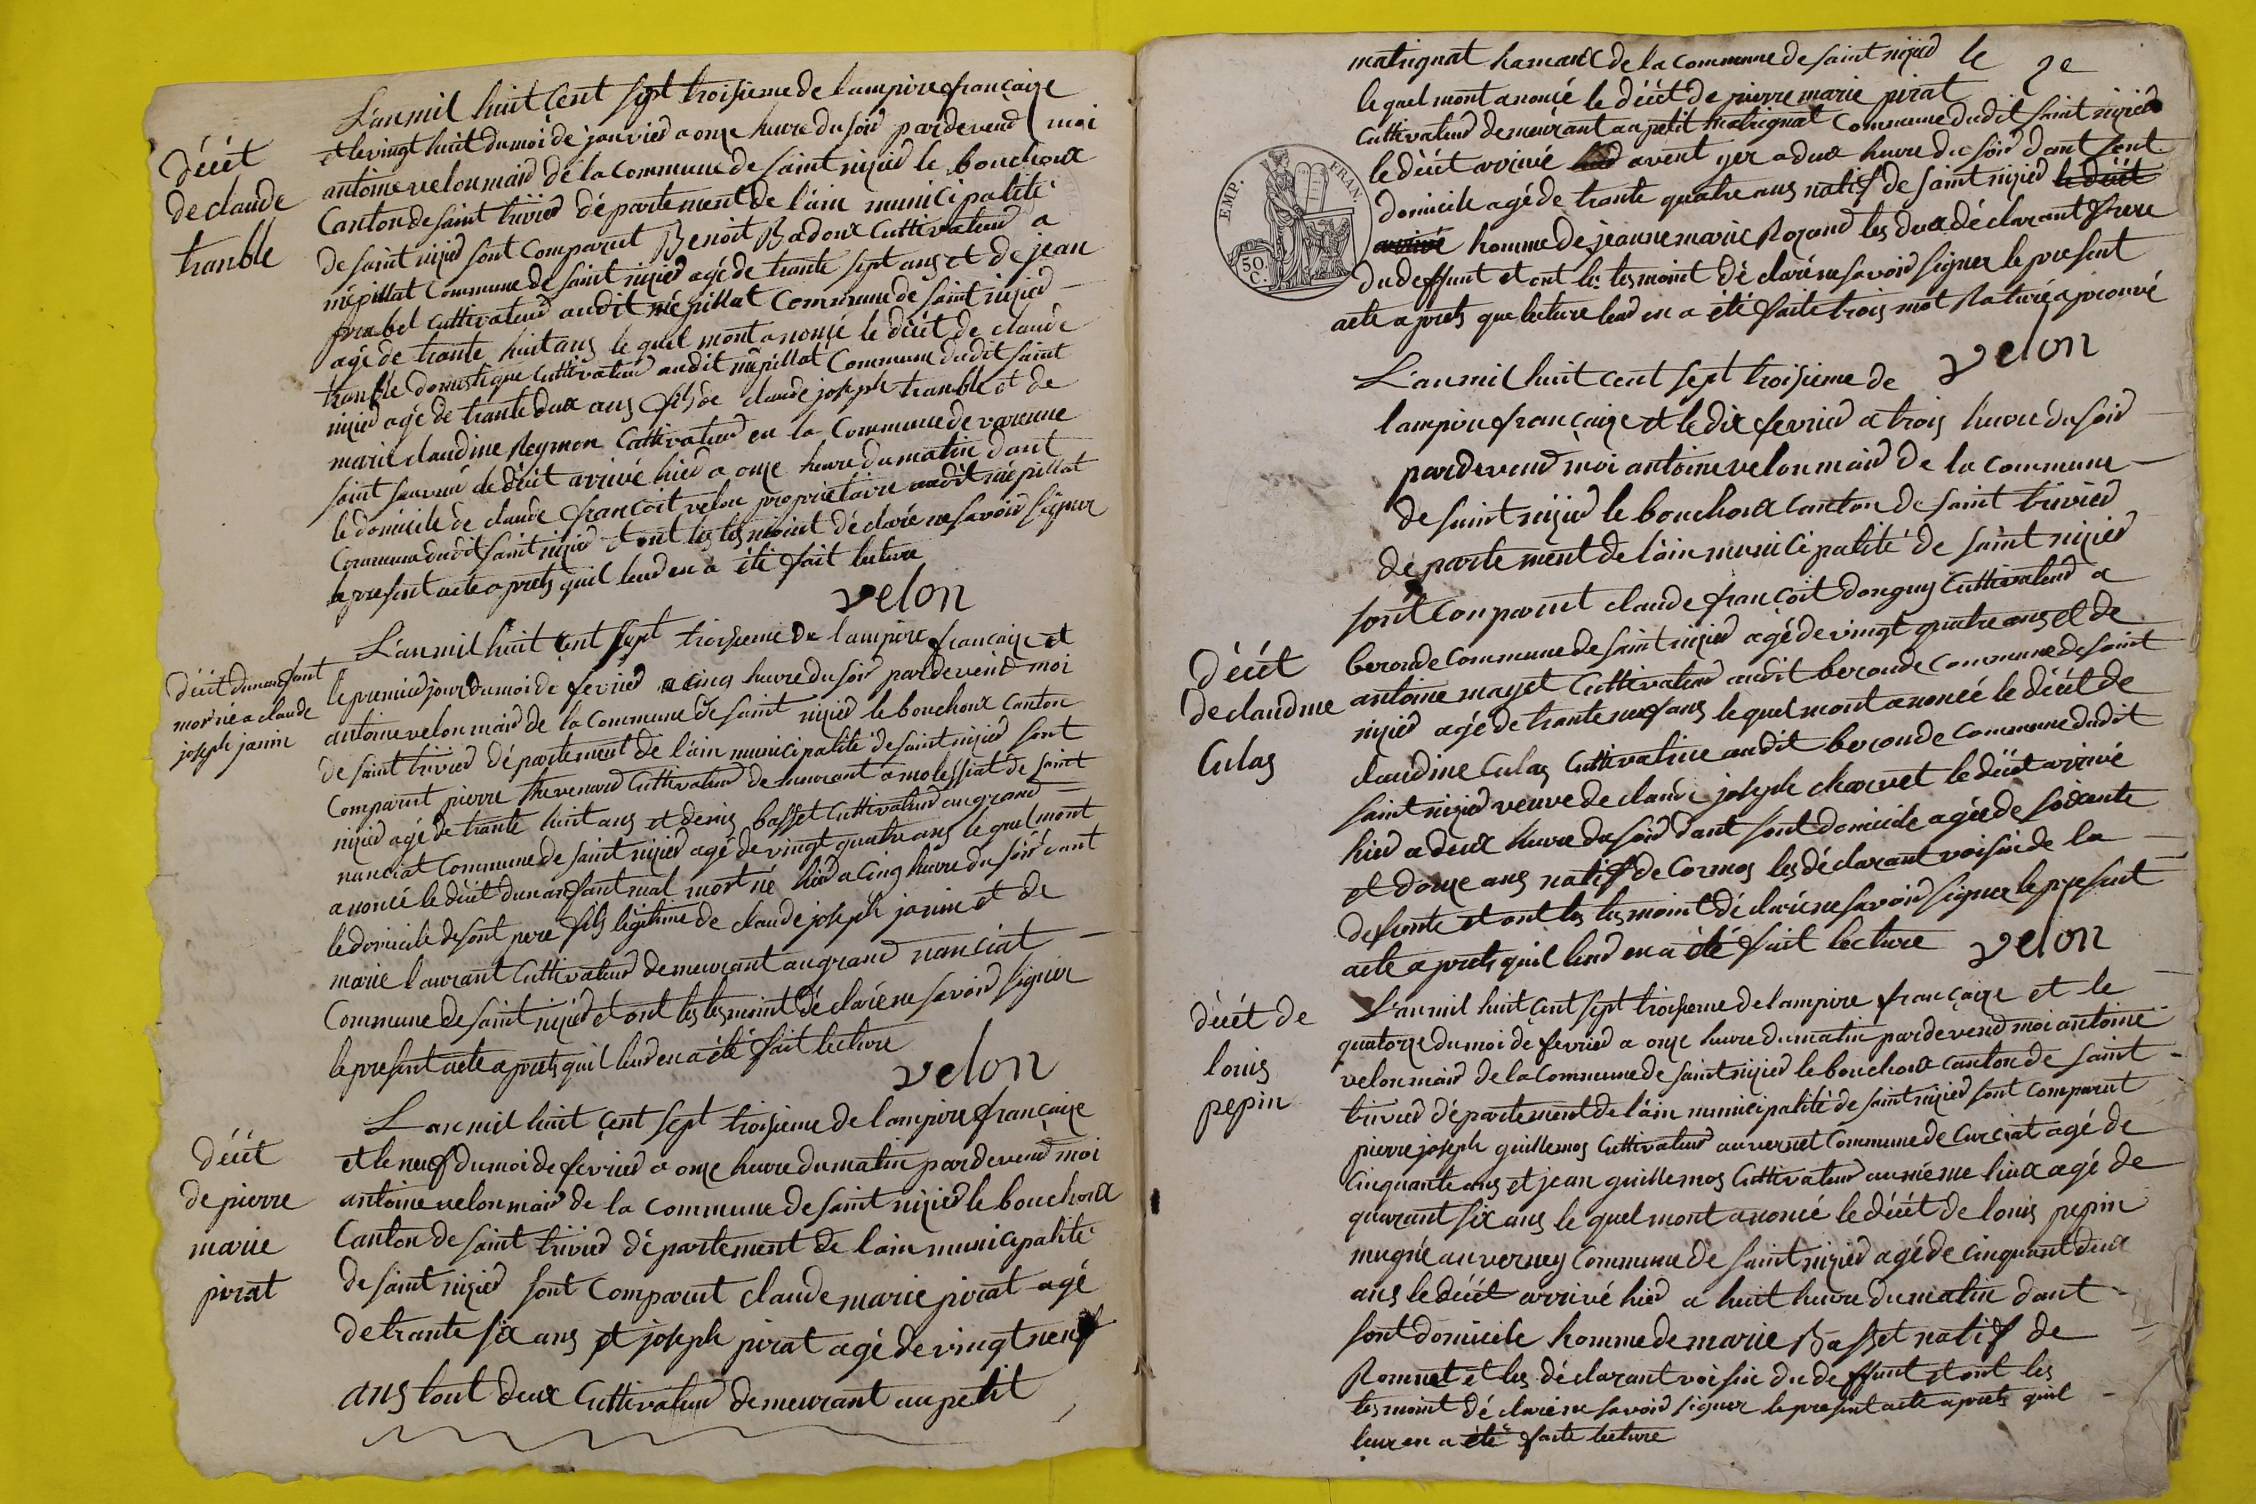 L'an mil huit cent sept troisieme de lampire françaize
et le vingt huit du moi de janvier a onze heure du soir pardevend moi
décét
de claude
tranble
antoine velon maire de la commune de saint nizier le bouchoux
Canton de saint trivier département de l'ain municipalité
de saint nizier sont comparut Benoit Badoux Cultivateur a
mépillat commune de saint nizier agé de trante sept ans et de jean
prabel cultivateur audit mépillat commune de saint nizier
agé de trante huit ans le quel mont anoncé le décét de claude
tranble domestique cultivateur audit mépillat Commune dudit saint
nizier agé de trante dux ans fils de claude joseph tranble et de
marie claudine Reymon Cultivateur en la Commune de varenne
saint sauveur le décét arrivé hier a onze heure du matin dant
le domicile de claude françoit velon proprietaire audit mépillat
Commune dudit saint nizier et ont les tesmoint déclaré ne savoir signer
le present acte a prets quil leur en a été fait lecture
velon
L'an mil huit cent sept troisieme de lampire françaize et
décét dun anfant
mor né a claude
joseph janin
le premier jour du moi de fevrier a cinq heure du soir pardevend moi
antoine velon maire de la commune de saint nizier le bouchoux canton
de saint trivier département de l'ain municipalité de saint nizier sont
Comparut pierre thevenard Cultivateur demeurant a molessiat de saint
nizier agé de trante huit ans et denis basset Cultivateur au grand
nanciat Commune de saint nizier agé de vingt quatre ans le quel mont
anoncé le décét dun anfant mal mort né hier a cinq heure du soir dant
le domicile de sont pere fils légitime de claude joseph janin et de
marie laurant Cultivateur demeurant au grand nanciat
Commune de saint nizier et ont les tesmoint déclaré ne savoir signer
le present acte a prets quil leur en a été fait lecture
velon
L'an mil huit cent sept troisieme de lampire françaize
décét
de pierre
marie
pirat
et le neuf du moi de fevrier a onze heure du matin pardevend moi
antoine velon maire de la commune de saint nizier le bouchoux
Canton de saint trivier département de lain municipalité
de saint nizier sont Comparut claude marie pirat agé
de trante six ans et joseph pirat agé de vingt neuf
ans tout deux Cultivateur demeurant au petit
matrignat hamaux de la commune de saint nizier le
le quel mont anoncé le décét de pierre marie pirat
Cultivateur demeurant au petit matrignat Commune dudit saint nizier
le décét arrivé avent yer a dux heure du soir dant sont
domicile agé de trante quatre ans natif de saint nizier le décét
arrivé homme de jeanne marie Rozand les dux déclarant frere
du deffunt et ont les tesmoint déclaré ne savoir signer le present
acte a prets que lecture leur en a été faite trois mot Raturé aprouvé
velon
EMP. FRAN.
50 C.
L'an mil huit cent sept troisieme de
lampire françaize et le dix fevrier a trois heure du soir
pardevend moi antoine velon maire de la commune
de saint nizier le bouchoux Canton de saint trivier
département de l'ain municipalité de saint nizier
sont Comparut claude françoit donguy Cultivateur a
décét
de claudine
Culas
beronde commune de saint nizier agé de vingt quatre ans et de
antoine mayet Cultivateur audit beronde commune de saint
nizier agé de trante neuf ans le quel mont anoncé le décét de
claudine Culas Cultivatrice audit beronde commune dudit
saint nizier veuve de claude joseph charvet le décét arrivé
hier a deux heure du soir dant sont domicile agée de soixante
et douze ans natif de Cormos les déclarant voisin de la
defunte et ont les tesmoint déclaré ne savoir signer le present
acte a prets quil leur en a été fait lecture
velon
L'an mil huit cent sept troisieme de lampire françaize et le
décét de
louis
pepin
quatorze du moi de fevrier a onze heure du matin pardevend moi antoine
velon maire de la commune de saint nizier le bouchoux canton de saint
trivier département de lain municipalité de saint nizier sont comparut
pierre joseph guillemos Cultivateur au vernet Commune de Curciat agé de
Cinquante ans et jean guillemos Cultivateur au méme liux agé de
quarant six ans le quel mont anoncé le décét de louis pepin
mugnié au verney Commune de saint nizier agé de cinquant deux
ans le décét arrivé hier a huit heure du matin dant
sont domicile homme de marie Basset natif de
Romnet et les déclarant voisin du deffunt et ont les
tesmoint déclaré ne savoir signer le present acte a prets quil
leur en a été faite lecture